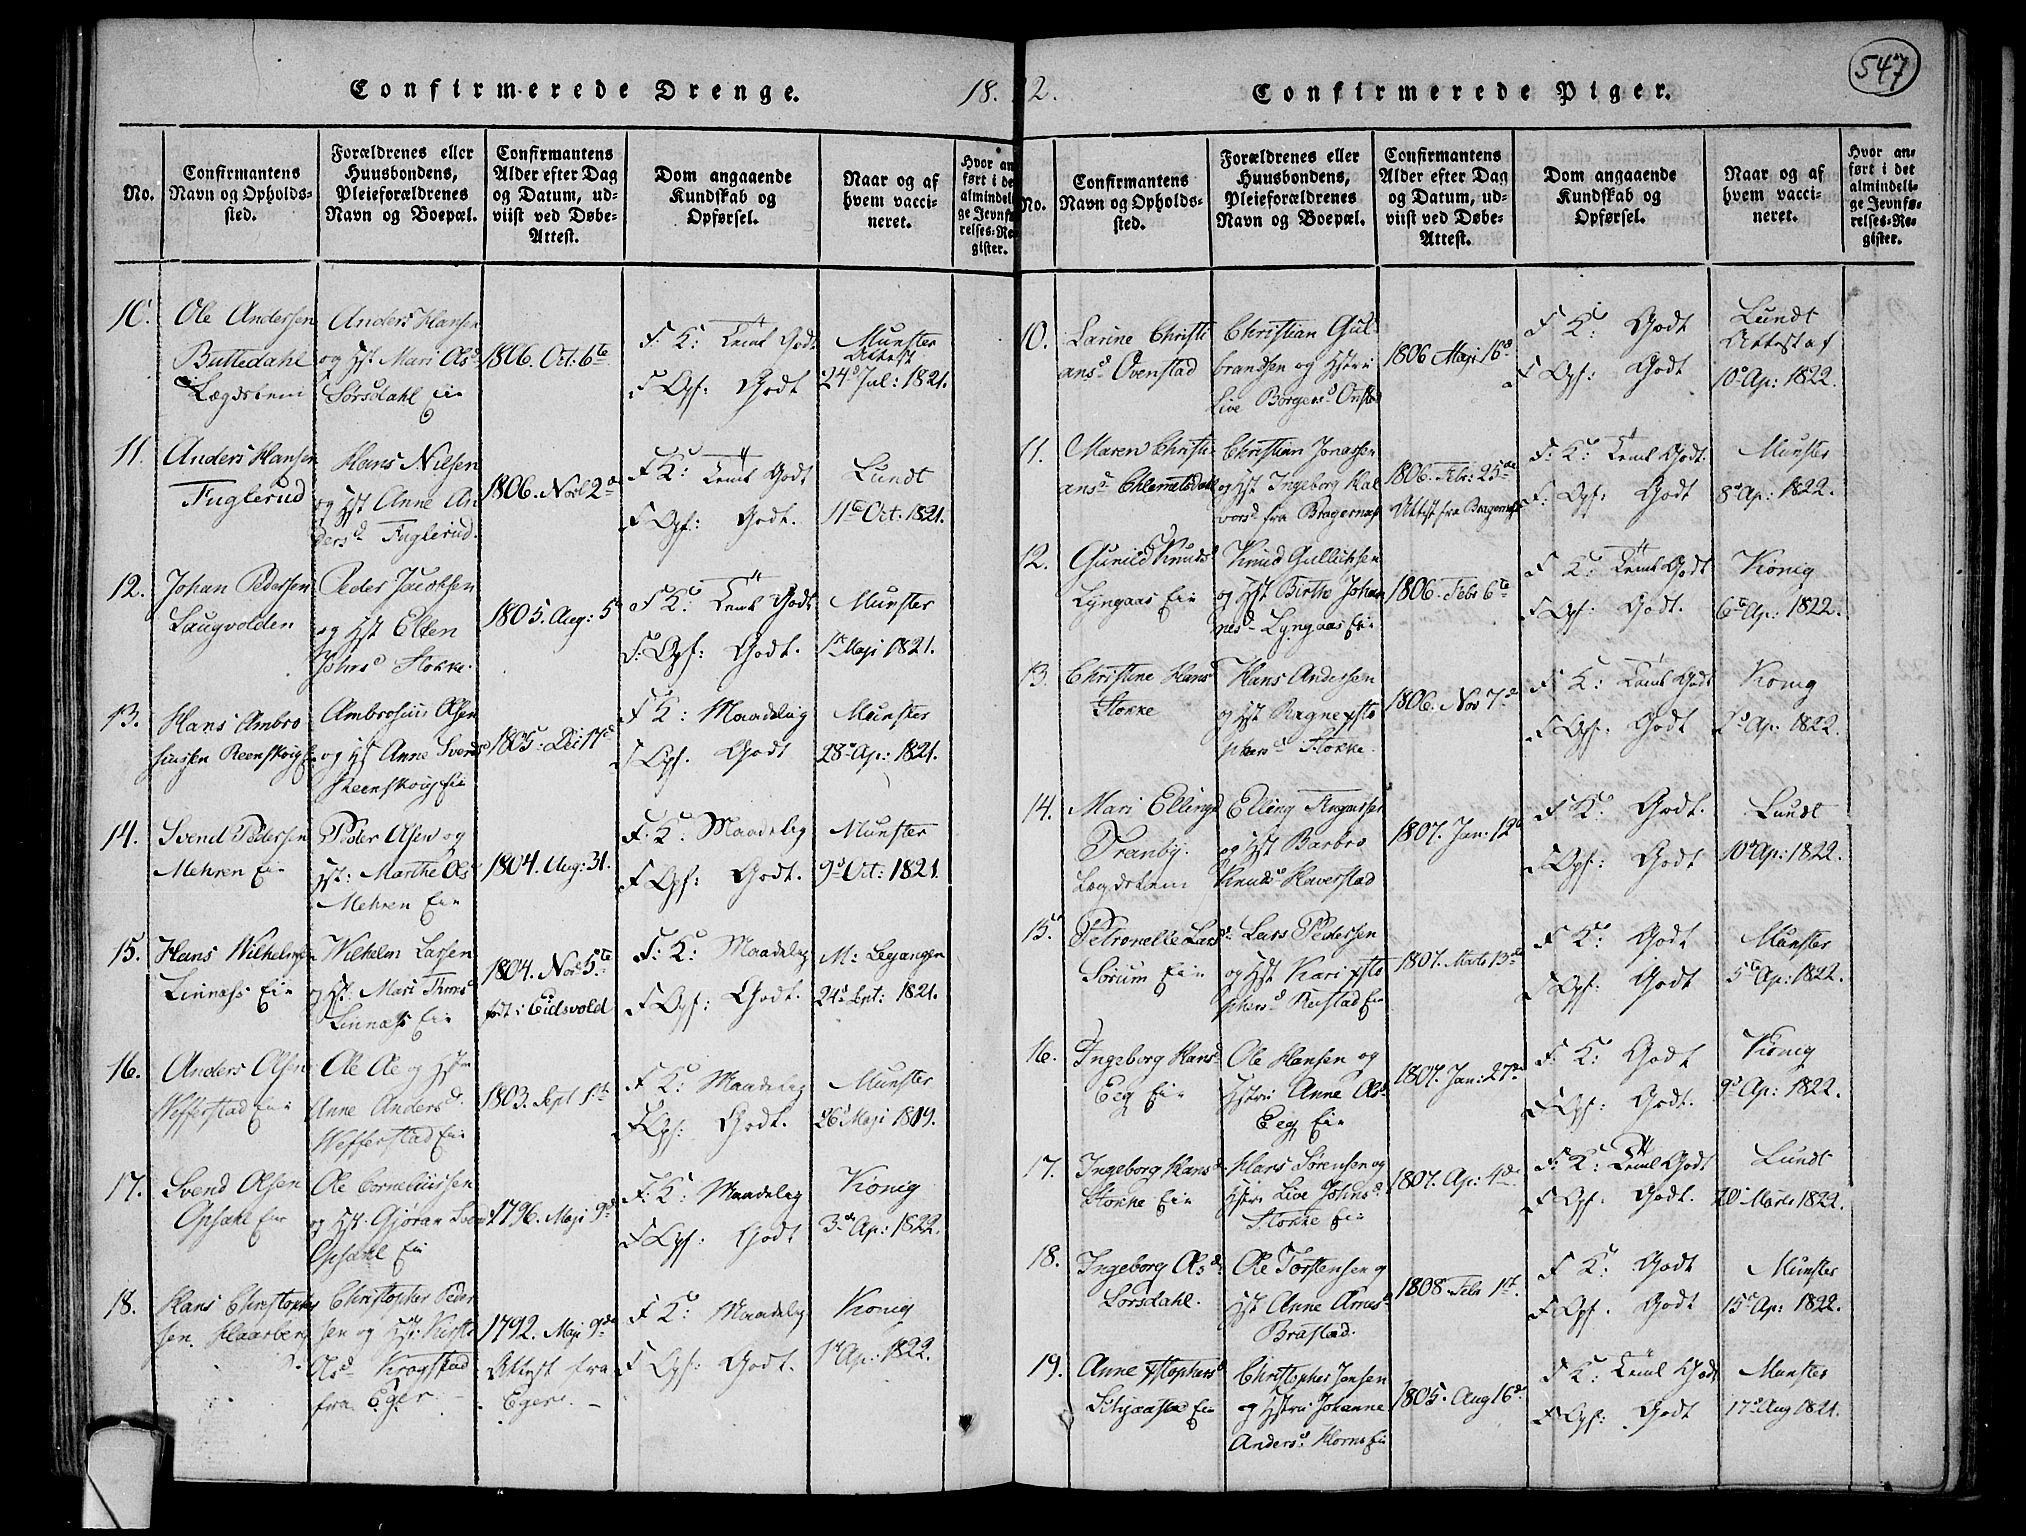 Confirmerede Drenge.
18.22.
Confirmerede Piger.
547
No.
Confirmantens
Navn og Opholds-
sted.
Forældrenes eller
Huusbondens,
Pleieforældrenes
Navn og Boepæl.
Confirmantens
Alder efter Dag
og Datum, ud-
viist ved Døbe-
Attest.
Dom angaaende
Kundskab og
Opførsel.
Naar og af
hvem vacci-
neret.
Hvor an
ført i de
almindel
ge Jevnfø
relses-Re
gister.
10.
Ole Andersen
Buttedahl
Lægdslem
Anders Hansen
og Hst Mari Olsd
Sorsdahl Eie
1806. Oct. 6te
F. K: Teml Godt
F Opf: Godt
Munster
Attest
24d Jul: 1821.
11.
Anders Hansen
Fuglerud
Hans Nilsen
og Hst Anne An
dersd Fuglerud.
1806. Nov 2
F K: Teml Godt
F Opf: Godt.
Lundt
11te Oct: 1821.
12.
Johan Pedersen
Haugvolden
Peder Jacobsen
og Hst Ellen
Johnsd Stokke.
1805. Aug: 5
F K: Teml Godt
F: Opf: Godt.
Munster
1ste Maji 1821.
13.
Hans Ambro
siusen Reenskoug E
Ambrosius Olsen
og Hst Anne Svends
Reenskoug Eie
1805. Dec 17d
F K: Maadelig
F Opf. Godt
Munster
28d Ap: 1821.
14.
Svend Pedersen
Mehren Eie
Peder Olsen og
Hst: Marthe Ols
Mehren Eie
1804. Aug: 31.
F. K: Maadelig
F Opf: Godt.
Munster
9d Oct: 1821.
15.
Hans Wilhelmsen
Linnæs Eie
Wilhelm Larsen
og Hst. Mari Thores
Linnæs Eie
1804. Nov 5te
født i Eidsvold
F. K: Maadelig
F Opf: Godt.
M: Leganger
24d Spt: 1821.
16.
Anders Olsen
Wefferstad Eie
Ole Ae og Hstr
Anne Andersd
Wefferstad Eie
1803. Sept 1ste
F K: Maadelig
F Opf: Godt.
Munster
26d Maji 1819.
17.
Svend Olsen
Opsahl Eie
Ole Corneliussen
og Hst. Gjøran Svend
Opsahl Eie
1796. Maji 9d
F. K: Maadelig
F Opf: Godt
Konig
3de Ap: 1822.
18.
Hans Christopher
sen. Haarberg
Christopher Peder
sen og Hst: Kirsti
Olsd Krogstad
fra Eger.
1792. Maji 9de
Attest fra
Eger.
F K: Maadelig
F Opf: Godt.
Konig
1st Ap: 1822.
No.
Confirmantens
Navn og Opholds-
sted.
Forældrenes eller
Huusbondens,
Pleieforældrenes
Navn og Boepæl.
Confirmantens
Alder efter Dag
og Datum, ud-
viist ved Døbe-
Attest.
Dom angaaende
Kundskab og
Opførsel.
Naar og af
hvem vacci-
neret.
Hvor an-
ført i det
almindeli-
ge Jevnfø-
relses-Re-
gister.
10.
Larine Christi
ansd Ovenstad
Christian Gul-
brandsen og Hstru
Live Borgersd Onstad
1806 Maji 16d
F K: Godt
F Opf: Godt
Lundt
Attest af
10d Ap: 1822.
11.
Maren Christi
ansd Chlemetsdahl
Christian Jonassen
og Hst Ingeborg Hal
vorsd fra Bragernæs
1806. Febr: 25de
Attest fra Bragernæs
F: K: Teml Godt.
F: Opf: Godt
Munster
8d Ap: 1822.
12.
Gunild Knuds
Lyngaas Eie
Knud Gullichsen
og Hst Birthe Johan
nesd Lyngaas Eie
1806. Febr 6te
F K: Teml Godt
F Opf: Godt.
Konig
6te Ap: 1822.
13.
Christine Hans
Stokke
Hans Andersen
og Hst Ragne Xsto
phersd Stokke.
1806. Nov 7d
F K: Teml Godt
F Opf: Godt
Konig
Ap: 1822.
14.
Mari Ellingsd
Tranby.
Lægdslem
Elling Tingarsen
og Hst Barbro
Knudsd Haverstad
1807. Jan: 12
F K: Godt.
F Opf: Godt
Lundt
10d Ap: 1822.
15.
Petronelle Larsd
Sorum Eie
Lars Pedersen
og Hst Kari Xsto
phersd Rustad Eie
1807. Marts 13de
F K: Godt
F Opf: Godt
Munster
5te Ap: 1822.
16.
Ingeborg Hansd
Eeg Eie
Ole Hansen og
Hstru Anne Olsd
Eeg Eie
1807. Jan: 27de
F. K: Godt
F Opf: Godt.
Konig
9d Ap: 1822.
17.
Ingeborg Hansd
Stokke Eie
Hans Sørensen og
Hstr: Live Johnsd
Stokke Eie
1807. Ap: 4de
F: K: Teml Godt
F Opf: Godt.
Lundt
20d Marts 1822.
18.
Ingeborg Olsd
Lorsdahl.
Ole Torstensen og
Hst Anne Arnesd
Brastad.
1808 Febr 1st.
F K: Godt
F Opf. Godt
Munster
15d Ap: 1822.
19.
Anne Xstophersd
Eie
Christopher Jensen
og Hstru Johanne
Andersd Horne Eie
1805. Aug 16d
F K: Teml Godt
F Opf: Godt
Munster
17d Aug 1821.